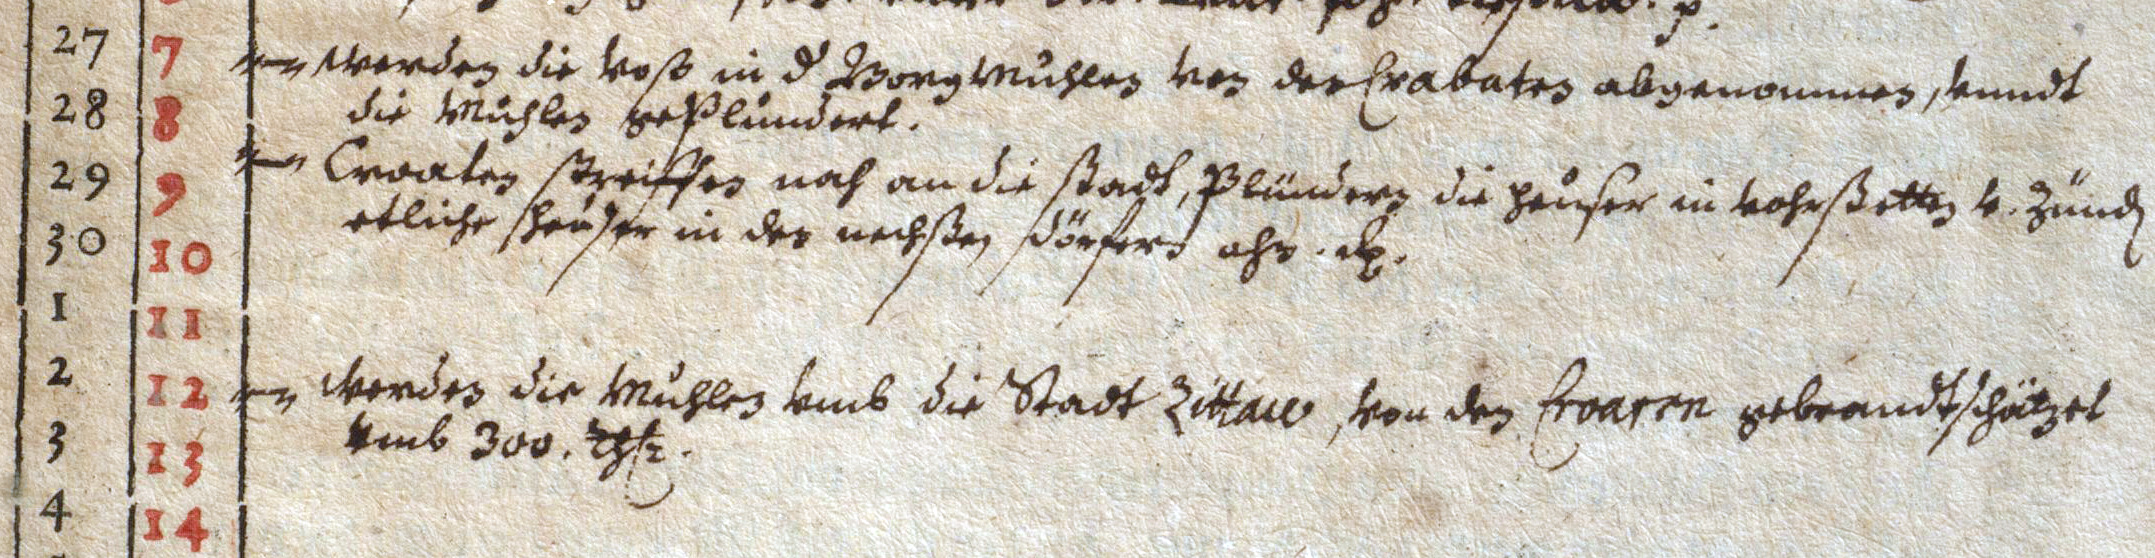 27 7 werden die Roß in d Borg Muhlen von den Crabaten abgenommen, vnndt
28 8 die Muhlen geplündert.
29 9 Croaten streiffen noch an die stadt, plündern die heuser in vohrstetten v. Zünd
30 10 etliche heuser in den nechsten dörfern ahn.
1 11
2 12 werden die Muhlen vmb die Stadt Zittaw, von den Croaten gebrandtschätzet
3 13 vmb 300.
4 14